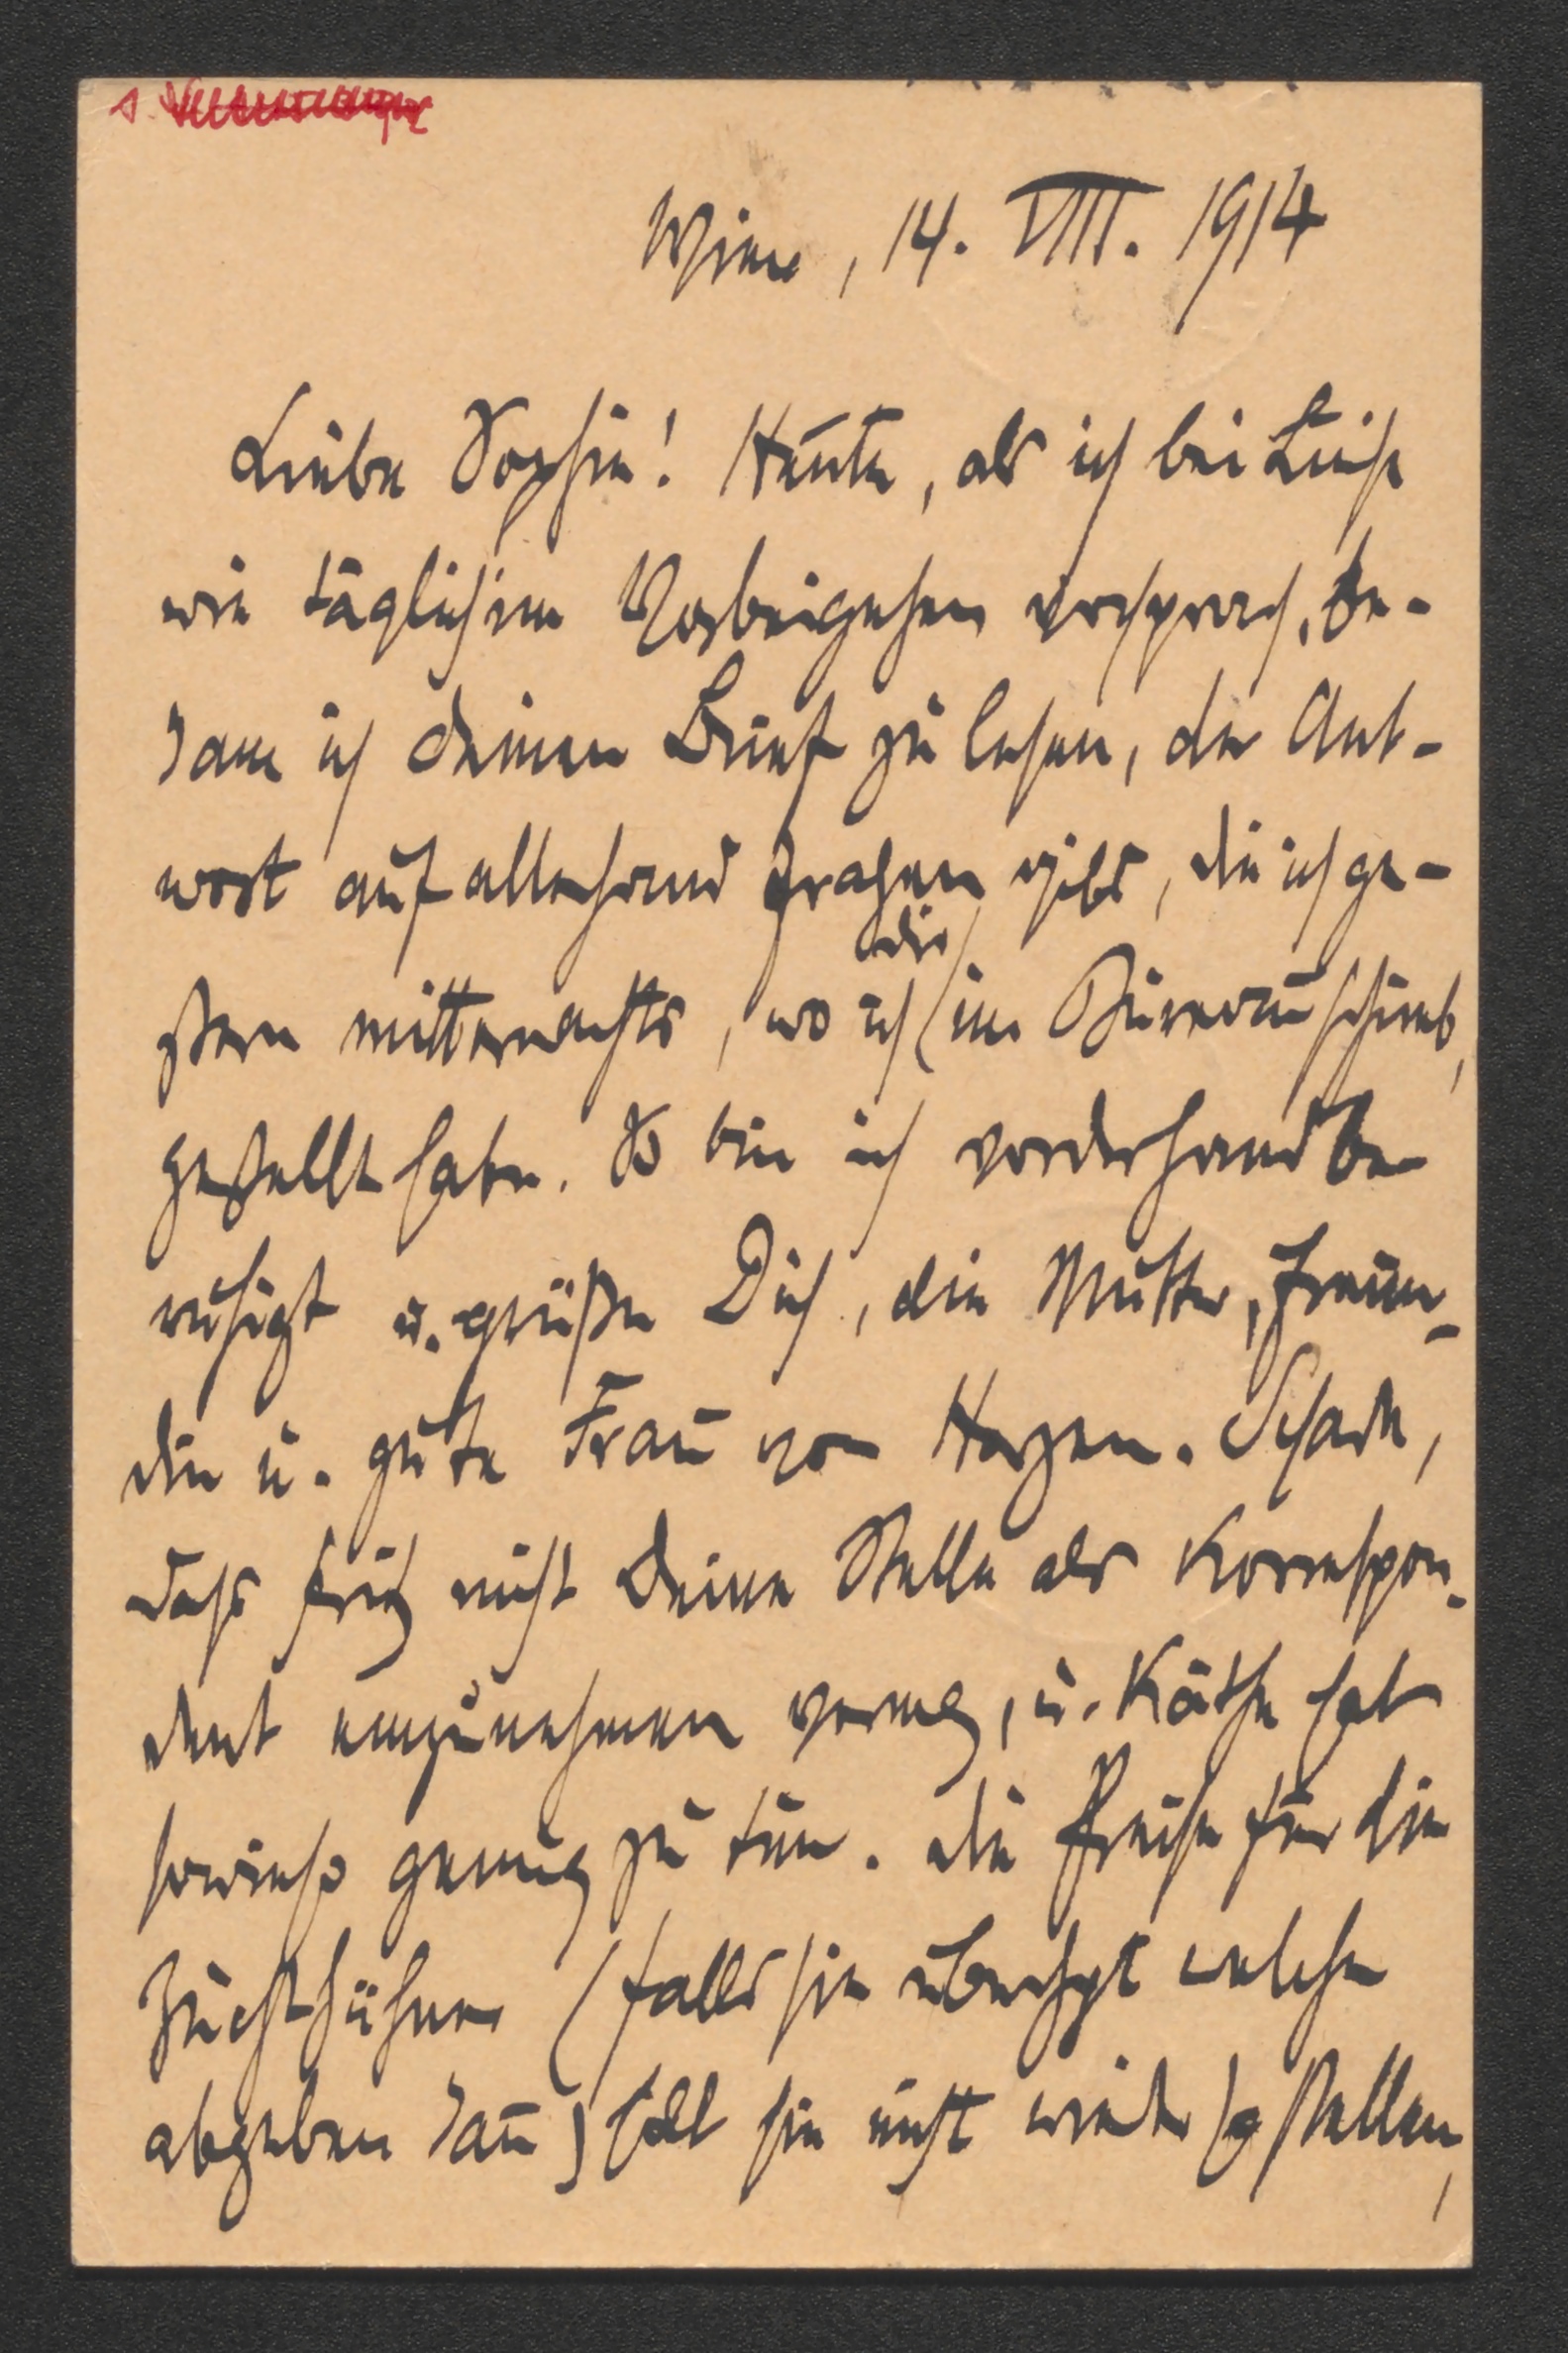 Wien, 14. VIII. 1914
Liebe Sophie! Heute, als ich bei Luise
wie täglich im Vorbeigehen vorsprach, be-
kam ich Deinen Brief zu lesen, der Ant-
wort auf allerhand Fragen gibt, die ich ge-
die
stern mitternachts, wo ich im Bureau schrieb,
gestellt habe. So bin ich vorderhand be
ruhigt u. grüße Dich, die Mutter, Freun-
din u. gute Frau von Herzen. Schade,
dass Fritz nicht Deine Stelle als Korrespon-
dent einzunehmen vermag, u. Käthe hat
sowieso genug zu tun. Die Preise für die
Zuchthühner (falls sie überhpt welche
abgeben kann) soll sie nicht wieder so stellen,